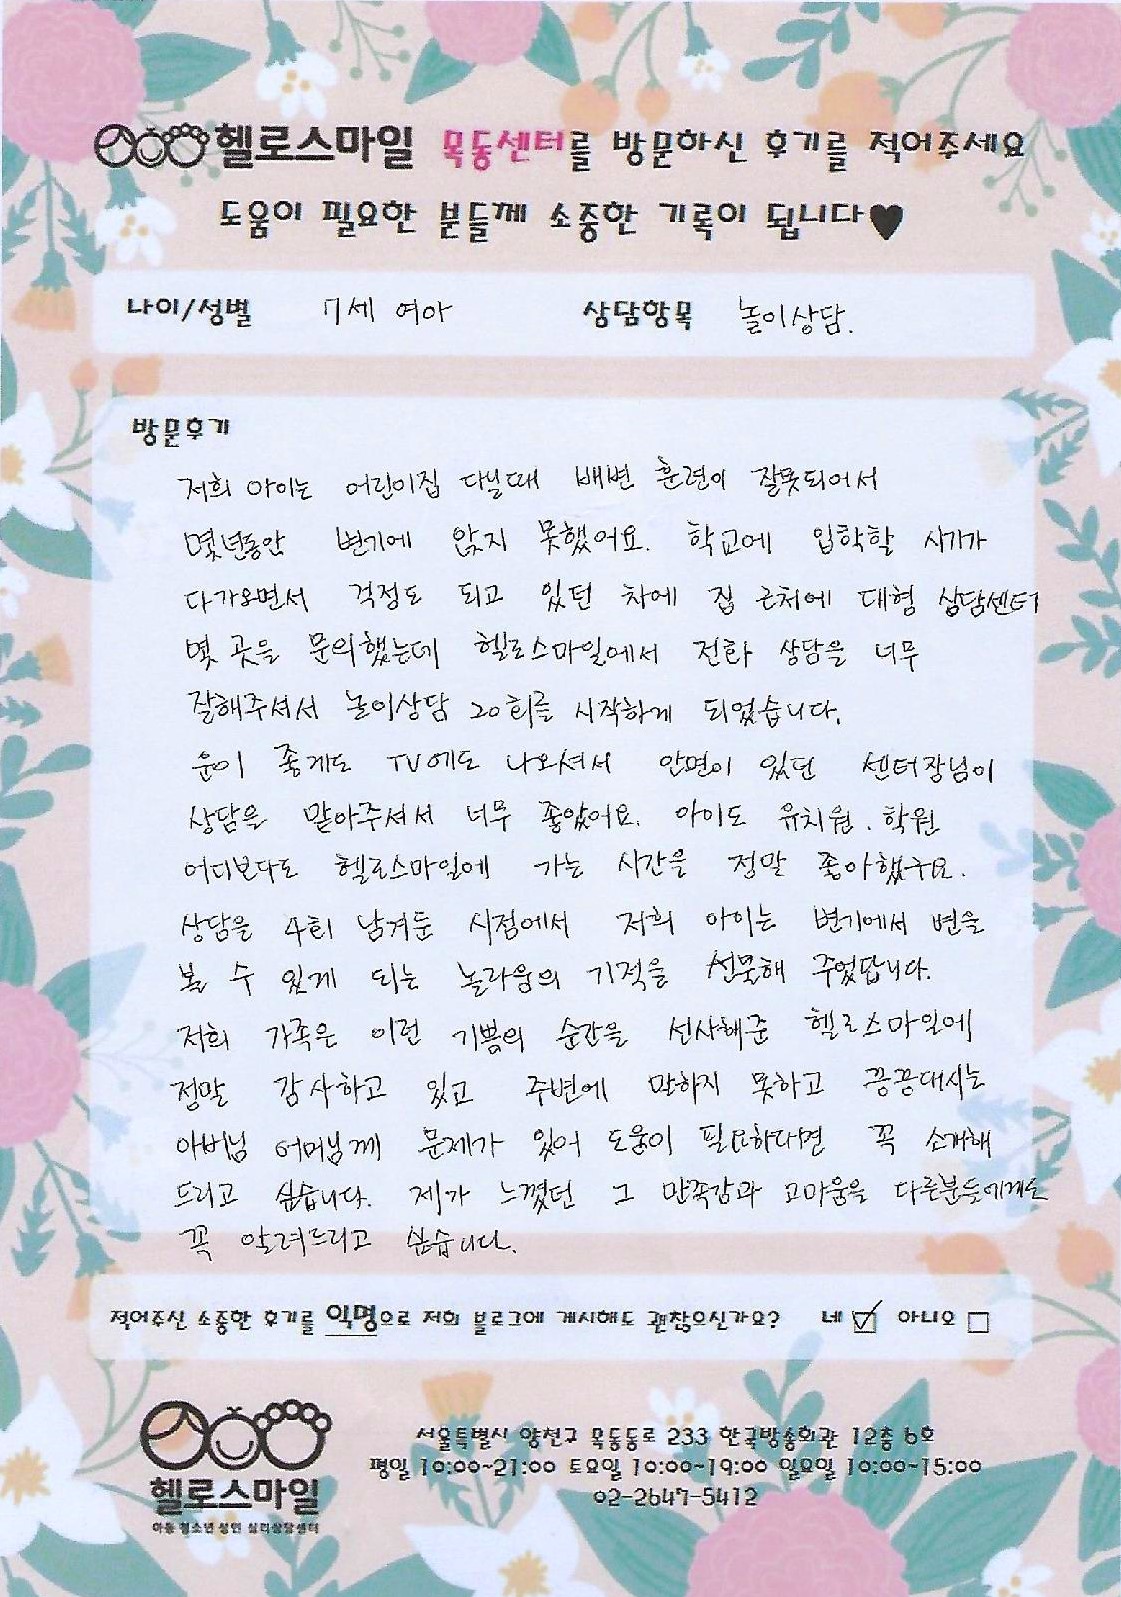 헬로스마일 목동센터를 방문하신 후기를 적어주세요
도움이 필요한 분들께 소중한 기록이 됩니다♥
나이/성별 7세 여아 상담항목 놀이상담.
방문후기
저희 아이는 어린이집 다닐때 배변 훈련이 잘못되어서
몇년동안 변기에 앉지 못했어요. 학교에 입학할 시기가
다가오면서 걱정도 되고 있던 차에 집 근처에 대형 상담센터
몇 곳을 문의했는데 헬로스마일에서 전화 상담을 너무
잘해주셔서 놀이상담 20회를 시작하게 되었습니다.
운이 좋게도 TV에도 나오셔서 안면이 있던 센터장님이
상담을 맡아주셔서 너무 좋았어요. 아이도 유치원. 학원
어디보다도 헬로스마일에 가는 시간을 정말 좋아했구요.
상담을 4회 남겨둔 시점에서 저희 아이는 변기에서 변을
볼 수 있게 되는 놀라움의 기적을 선물해 주었답니다.
저희 가족은 이런 기쁨의 순간을 선사해준 헬로스마일에
정말 감사하고 있고 주변에 말하지 못하고 끙끙대시는
아버님 어머님께 문제가 있어 도움이 필요하다면 꼭 소개해
드리고 싶습니다. 제가 느꼈던 그 만족감과 고마움을 다른분들에게도
꼭 알려드리고 싶습니다.
적어주신 소중한 후기를 익명으로 저희 블로그에 게시해도 괜찮으신가요? 네 ☑ 아니오 □
헬로스마일
아동 청소년 성인 심리상담센터
서울특별시 양천구 목동동로 233 한국방송회관 12층 6호
평일 10:00~21:00 토요일 10:00~19:00 일요일 10:00~15:00
02-2647-5412